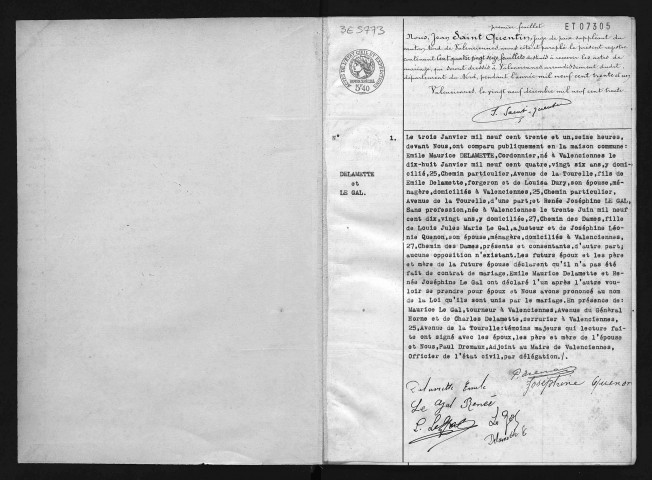 premier feuillet
ET07305
3E5773
Nous, Jean Saint Quentin, Juge de paix suppléant du
canton Nord de Valenciennes avons coté et paraphé le présent registre
contenant Cent quatre vingt seize feuillets destiné à recevoir les actes de
mariage, qui seront dressés à Valenciennes arrondissement dudit
département du Nord, pendant l'année mil neuf cent trente et un
Valenciennes, le vingt neuf décembre mil neuf cent trente
J. Saint-Quentin
N° 1.
DELAMETTE
et
LE GAL.
Le trois Janvier mil neuf cent trente et un, seize heures,
devant Nous, ont comparu publiquement en la maison commune:
Emile Maurice DELAMETTE, Cordonnier, né à Valenciennes le
dix-huit Janvier mil neuf cent quatre, vingt six ans, y domi-
cilié, 25, Chemin particulier, Avenue de la Tourelle, fils de
Emile Delamette, forgeron et de Louisa Dury, son épouse, mé-
nagère, domiciliés à Valenciennes, 25, Chemin particulier,
Avenue de la Tourelle, d'une part; et Renée Joséphine LE GAL,
Sans profession, née à Valenciennes le trente Juin mil neuf
cent dix, vingt ans, y domiciliée, 27, Chemin des Dames, fille
de Louis Jules Marie Le Gal, ajusteur et de Joséphine Léo-
nie Quenon, son épouse, ménagère, domiciliés à Valenciennes,
27, Chemin des Dames, présents et consentants, d'autre part;
aucune opposition n'existant. Les futurs époux et les père
et mère de la future épouse déclarent qu'il n'a pas été
fait de contrat de mariage. Emile Maurice Delamette et Re-
née Joséphine Le Gal ont déclaré l'un après l'autre vou-
loir se prendre pour époux et Nous avons prononcé au nom
de la Loi qu'ils sont unis par le mariage. En présence de:
Maurice Le Gal, tourneur à Valenciennes, Avenue du Général
Horne et de Charles Delamette, serrurier à Valenciennes,
25, Avenue de la Tourelle: témoins majeurs qui lecture fai-
te ont signé avec les époux, les père et mère de l'épouse
et Nous, Paul Dremaux, Adjoint au Maire de Valenciennes,
Officier de l'état civil, par délégation./.
Delamette Emile
Joséphine Quenon
Le Gal Renée
L. Le Gal
Le Gal
Delamette C